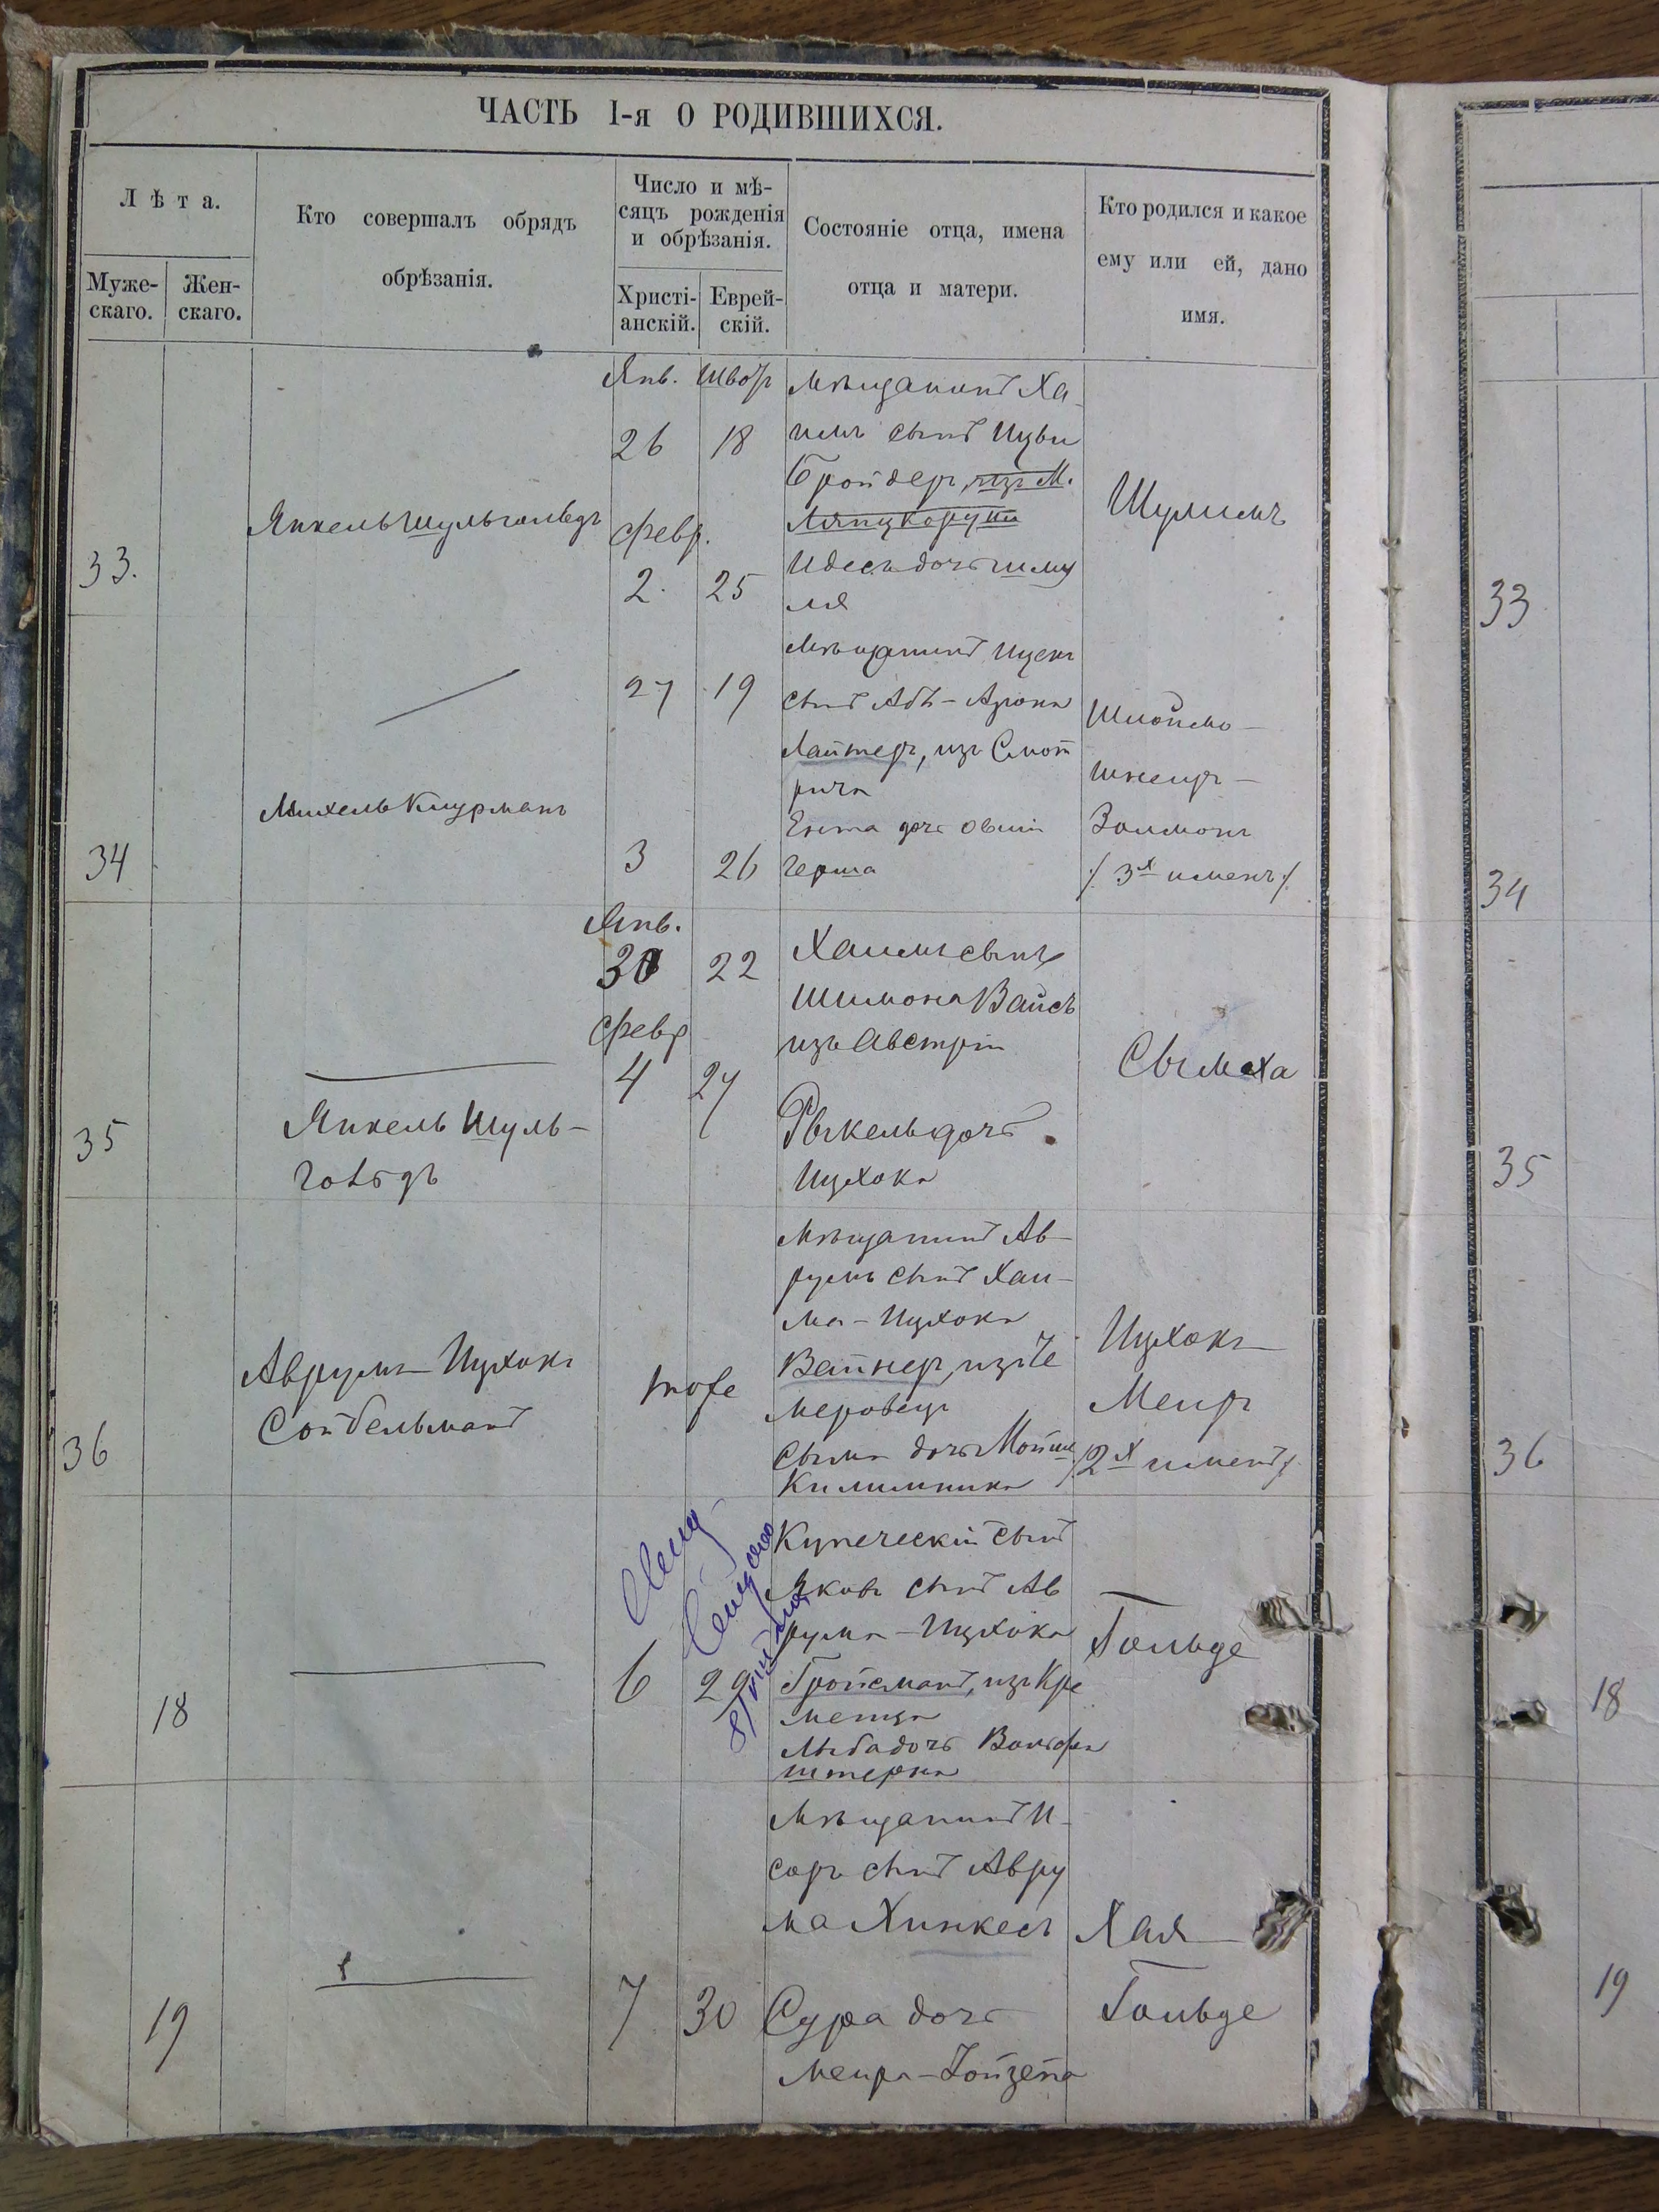 ЧАСТЬ I-я О РОДИВШИХСЯ.
Лѣта.
Муже-
скаго.
Жен-
скаго.
Кто совершалъ обрядъ
обрѣзанія.
Число и мѣ-
сяцъ рожденія
и обрѣзанія.
Христі-
анскій.
Еврей-
скій.
Состояніе отца, имена
отца и матери.
Кто родился и какое
ему или ей, дано
имя.
33.
Янкель Шульгольвдъ
Янв. Швотъ
26 18
Февр.
2. 25
Мѣщанинъ Ха-
имъ сынъ Ицви
Бройдеръ, изъ М.
Ляпцкоруни
Идесъ дочь Шму
ля
Шулимъ
33
34
Михель Кицрманъ
27 19
3 26
Мѣщанинъ Ицекъ
сынъ Абъ-Арона
Лайтеръ, изъ Смот
рича
Ента дочь Овшія
Герша
Шлойме-
Шнеиръ-
Залмонъ
/. 3х именъ /.
34
35
Янкель Шуль-
гольдъ
Янв.
30 22
Февр
4 27
Хаимъ сынъ
Шимона Вайсъ
изъ Австріи
Рыкель дочь
Ицхока
Сымха
35
36
Аврумъ-Ицхокъ
Сойбельманъ
тоже
Мѣщанинъ Ав-
румъ сынъ Хаи-
ма-Ицхока
Вайнеръ, изъ Че
меровецъ
Сыма дочь Мойше
Килимника
Ицхокъ-
Меиръ
/2х именъ/.
36
18
6 29
Купеческій сынъ
Яковъ сынъ Ав
рума-Ицхока
Гройсманъ, изъ Кре
менца
Лыба дочь Вольфа
Штерна
Гольде
18
19
7 30
Мѣщанинъ И-
соръ сынъ Авру
ма Хинкесъ
Сура дочь
Меира-Зойзена
Хая-
Гольде
19